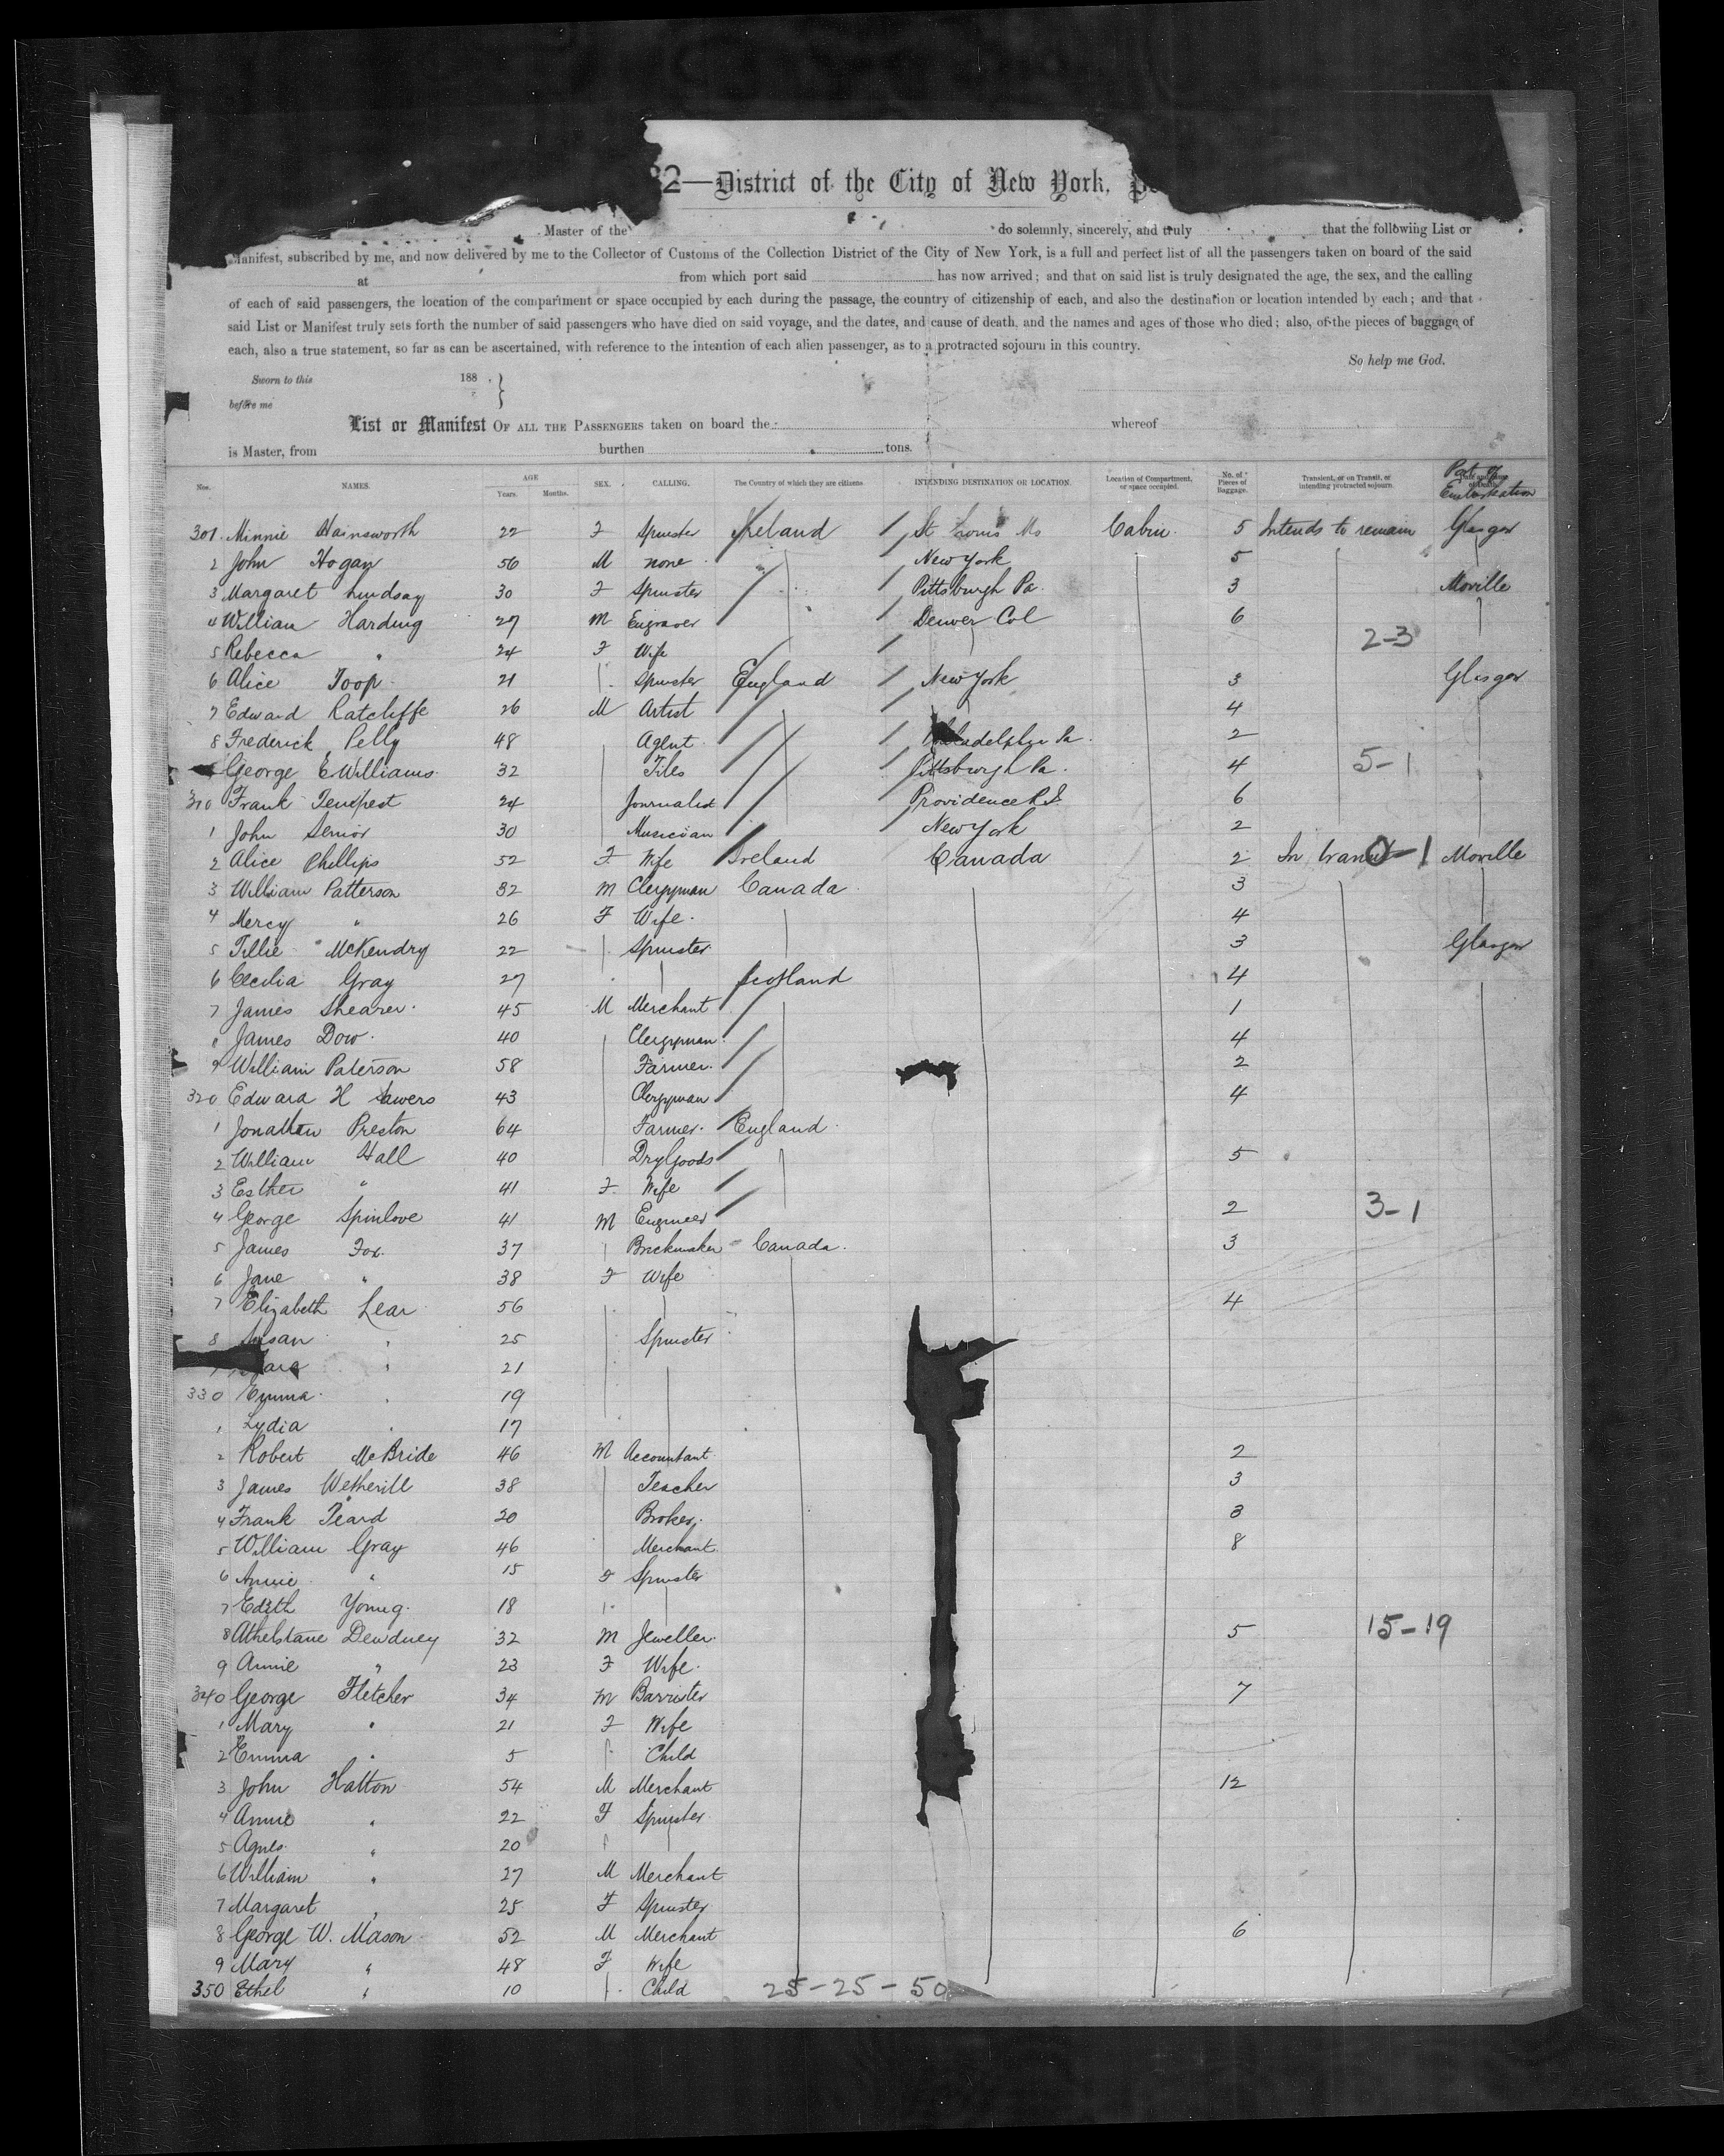 82—District of the City of New York,
Master of the do solemnly, sincerely, and truly that the followiing List or
Manifest, subscribed by me, and now delivered by me to the Collector of Customs of the Collection District of the City of New York, is a full and perfect list of all the passengers taken on board of the said
at from which port said has now arrived; and that on said list is truly designated the age, the sex, and the calling
of each of said passengers, the location of the compartment or space occupied by each during the passage, the country of citizenship of each, and also the destination or location intended by each; and that
said List or Manifest truly sets forth the number of said passengers who have died on said voyage, and the dates, and cause of death, and the names and ages of those who died; also, of the pieces of baggage of
each, also a true statement, so far as can be ascertained, with reference to the intention of each alien passenger, as to a protracted sojourn in this country.
So help me God.
Sworn to this 188 }
before me
List or Manifest OF ALL THE PASSENGERS taken on board the whereof
is Master, from burthen tons.
Nos. NAMES. AGE Years. Months. SEX. CALLING. The Country of which they are citizens. INTENDING DESTINATION OR LOCATION. Location of Compartment, or space occupied. No. of Pieces of Baggage. Transient, or on Transit, or intending protracted sojourn. Port of Embarkation
301 Minnie Hainsworth 22 F Spinster Ireland / St Louis Mo Cabin 5 Intends to remain Glasgow
2 John Hogan 56 M none New York 5
3 Margaret Lindsay 30 F Spinster / Pittsburgh Pa. 3 Moville
4 William Harding 27 M Engraver / Denver Col 6
5 Rebecca " 24 F Wife / 2-3
6 Alice Toop 21 Spinster England / New York 3 Glasgow
7 Edward Ratcliffe 26 M Artist 4
8 Frederick Pelly 48 Agent / Philadelphia Pa. 2
George E Williams 32 Tiles Pittsburgh Pa. 4 5-1
310 Frank Tempest 24 Journalist Providence R.I. 6
1 John Senior 30 Musician New York 2
2 Alice Phillips 52 F Wife Ireland Canada 2 In transit 0-1 Moville
3 William Patterson 32 M Clergyman Canada 3
4 Mercy " 26 F Wife 4
5 Tillie McKendry 22 Spinster 3 Glasgow
6 Cecilia Gray 27 Scotland 4
7 James Shearer 45 M Merchant 1
James Dow 40 Clergyman 4
9 William Paterson 58 Farmer 2
320 Edward H Sawers 43 Clergyman 4
1 Jonathan Preston 64 Farmer England
2 William Hall 40 Dry Goods 5
3 Esther " 41 F Wife
4 George Spinlove 41 M Engineer 2 3-1
5 James Fox 37 Brickmaker Canada 3
6 Jane " 38 F Wife
7 Elizabeth Lear 56 4
8 Susan " 25 Spinster
" 21
330 Emma " 19
1 Lydia " 17
2 Robert McBride 46 M Accountant 2
3 James Wetherill 38 Teacher 3
4 Frank Peard 20 Broker 3
5 William Gray 46 Merchant 8
6 Annie " 15 F Spinster
7 Edith Young 18
8 Athelstane Dewdney 32 M Jeweller 5 15-19
9 Annie " 23 F Wife
340 George Fletcher 34 M Barrister 7
1 Mary " 21 F Wife
2 Emma " 5 Child
3 John Hatton 54 M Merchant 12
4 Annie " 22 F Spinster
5 Agnes " 20
6 William " 27 M Merchant
7 Margaret " 25 F Spinster
8 George W. Mason 52 M Merchant 6
9 Mary " 48 F Wife
350 Ethel " 10 Child 25-25-50